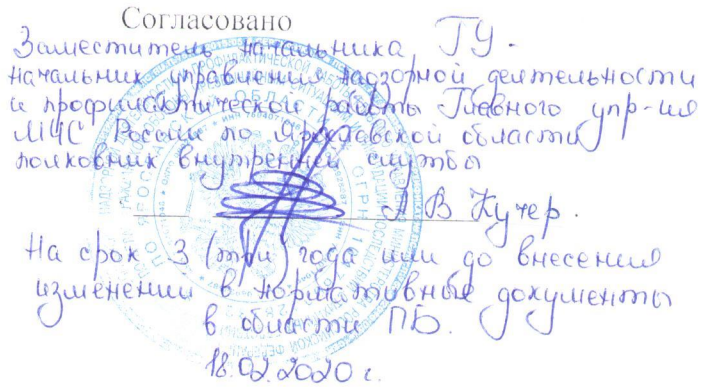 Согласовано
Заместитель начальника ГУ -
начальник управления надзорной деятельности
и профилактической работы Главного упр-ия
МЧС России по Ярославской области
полковник внутренней службы
А В Кучер.
На срок 3 (три) года или до внесения
изменении в нормативные документы
в области ПБ.
18.02.2020 г.